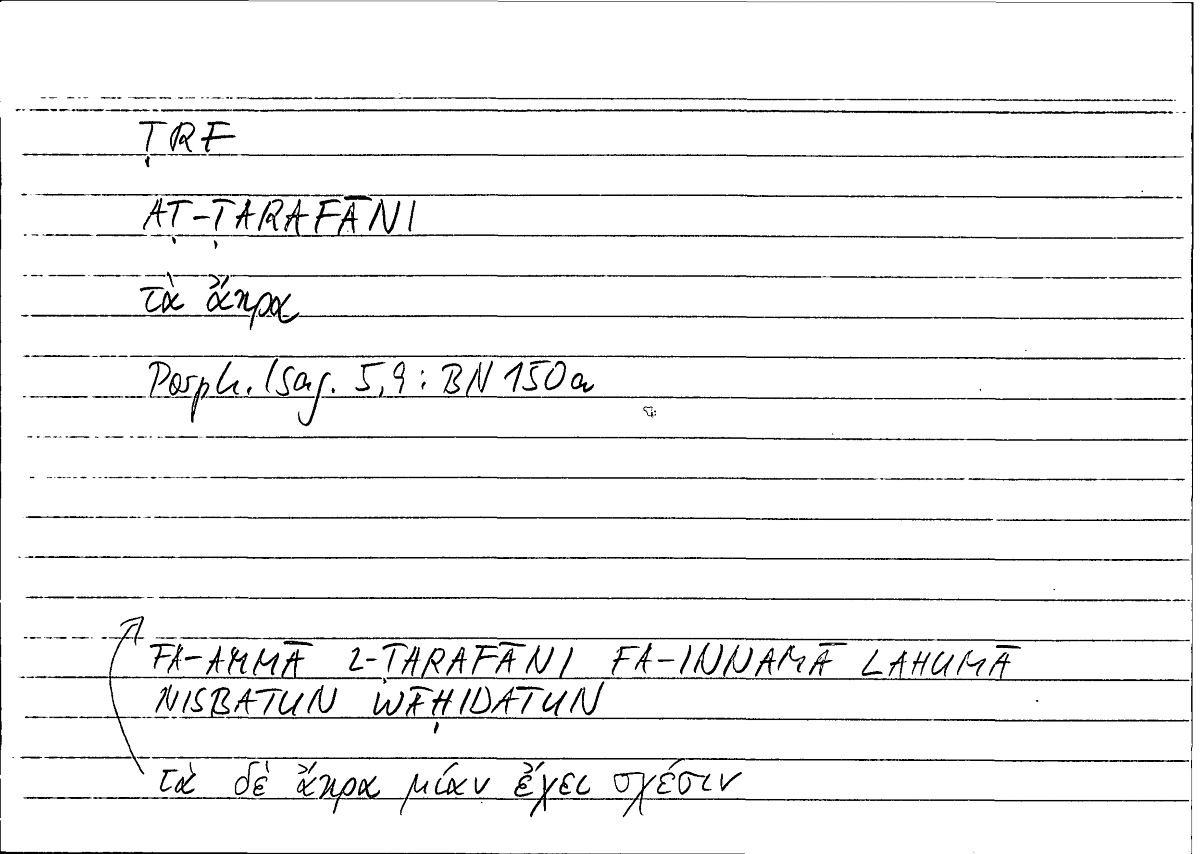 ṬRF
AṬ-ṬARAFĀNI
τὰ ἄκρα
Porph. Isag. 5,9 : BN 150a
FA-AMMĀ L-ṬARAFĀNI FA-INNAMĀ LAHUMĀ
NISBATUN WĀḤIDATUN
τὰ δὲ ἄκρα μίαν ἔχει σχέσιν